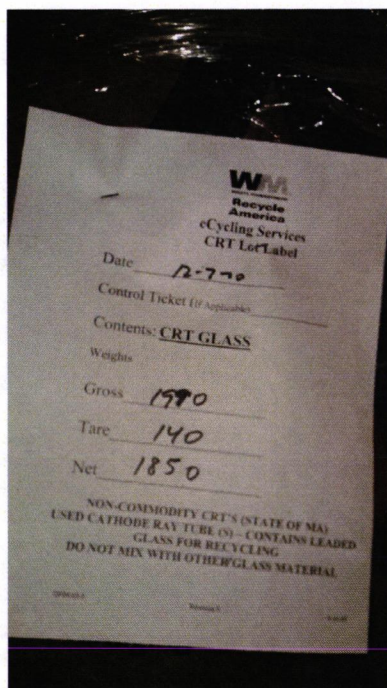 WM
WASTE MANAGEMENT
Recycle
America
eCycling Services
CRT Lot Label
Date 12-7-10
Control Ticket (If Applicable)
Contents: CRT GLASS
Weights
Gross 1990
Tare 140
Net 1850
NON-COMMODITY CRT'S (STATE OF MA)
USED CATHODE RAY TUBE (S) – CONTAINS LEADED
GLASS FOR RECYCLING
DO NOT MIX WITH OTHER GLASS MATERIAL